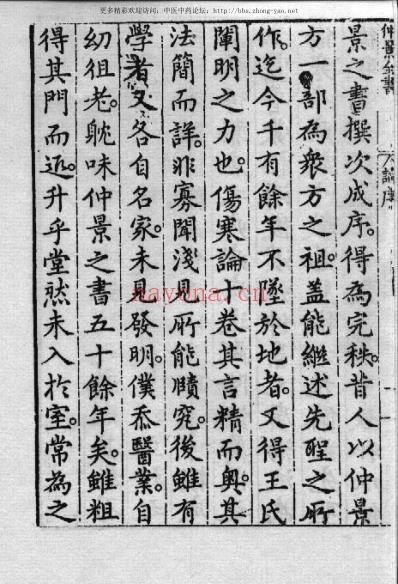 更多精彩欢迎访问：中医中药论坛：http://bbs.zhong-yao.net/
仲景全書
景之書撰次成序。得為完秩。昔人以仲景
方一部為衆方之祖。盖能繼述先聖之所
作。迄今千有餘年不墜於地者。又得王氏
闡明之力也。傷寒論十卷其言精而奥。其
法簡而詳。非寡聞淺見所能賾究。後雖有
學者。又各自名家。未見發明。僕忝醫業。自
幼徂老。耽味仲景之書五十餘年矣。雖粗
得其門而近。升乎堂然未入於室。常為之
nayona.cn